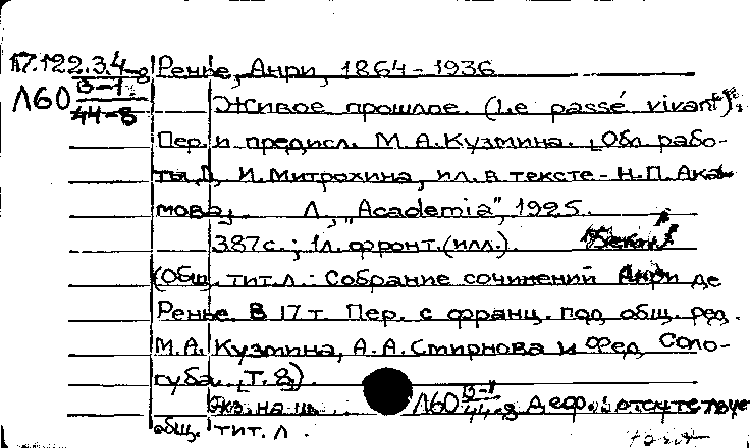 17.122.3.4 Ренье, Анри, 1864-1936
Л60 В-1/44-8 Живое прошлое. (Le passé vivant).
Пер. и предисл. М.А.Кузмина. [Обл. рабо-
ты Д. И. Митрохина, ил. в тексте - Н.П. Ака-
мова]. Л., "Academia", 1925.
387с.; 1л. фронт.(илл.).
(Общ. тит. л.: Собрание сочинений Анри де
Ренье. В 17 т. Пер. с франц. под общ. ред.
М.А. Кузмина, А.А. Смирнова и Фед. Соло-
губа. [Т. 8).
Экз. на Л60 В-1/44-8 деф.: отсутствует
общ. тит. л.